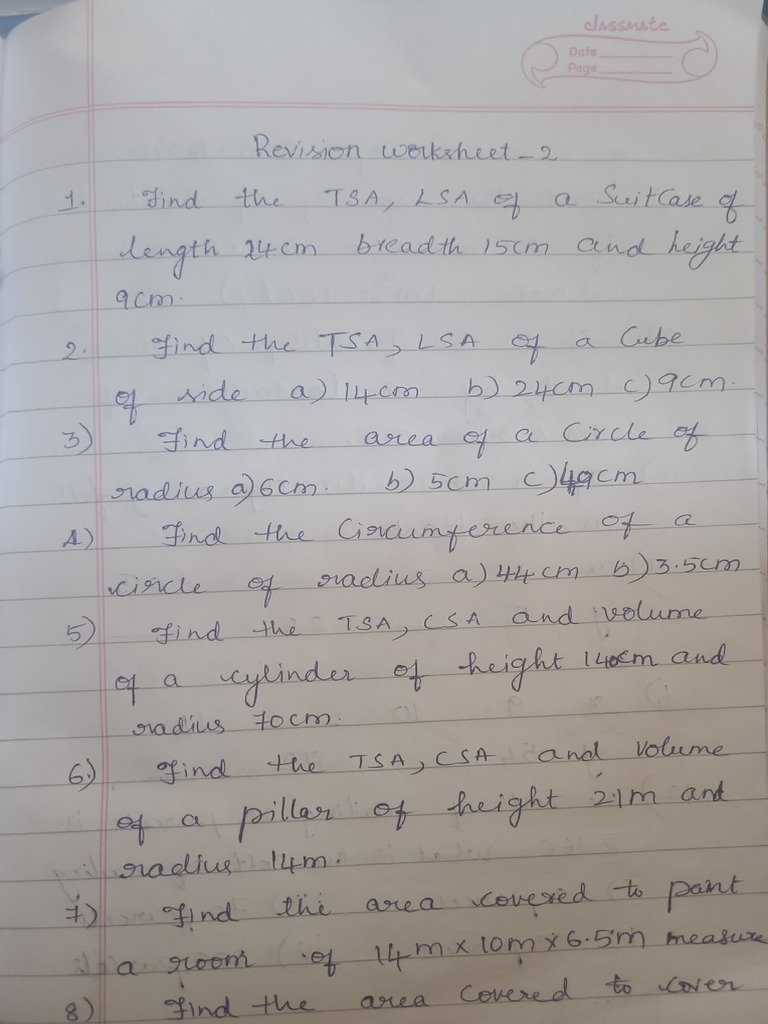 classmate
Date
Page
Revision worksheet-2
1. Find the TSA, LSA of a Suitcase of
length 24cm breadth 15cm and height
9cm.
2. Find the TSA, LSA of a Cube
of side a) 14cm b) 24cm c) 9cm.
3) Find the area of a Circle of
radius a) 6cm. b) 5cm c) 49cm
4) Find the Circumference of a
circle of radius a) 44cm b) 3.5cm
5) Find the TSA, CSA and volume
of a cylinder of height 140cm and
radius 70cm.
6.) Find the TSA, CSA and volume
of a pillar of height 21m and
radius 14m.
7) Find the area covered to paint
a room of 14m x 10m x 6.5m measure
8) Find the area covered to cover